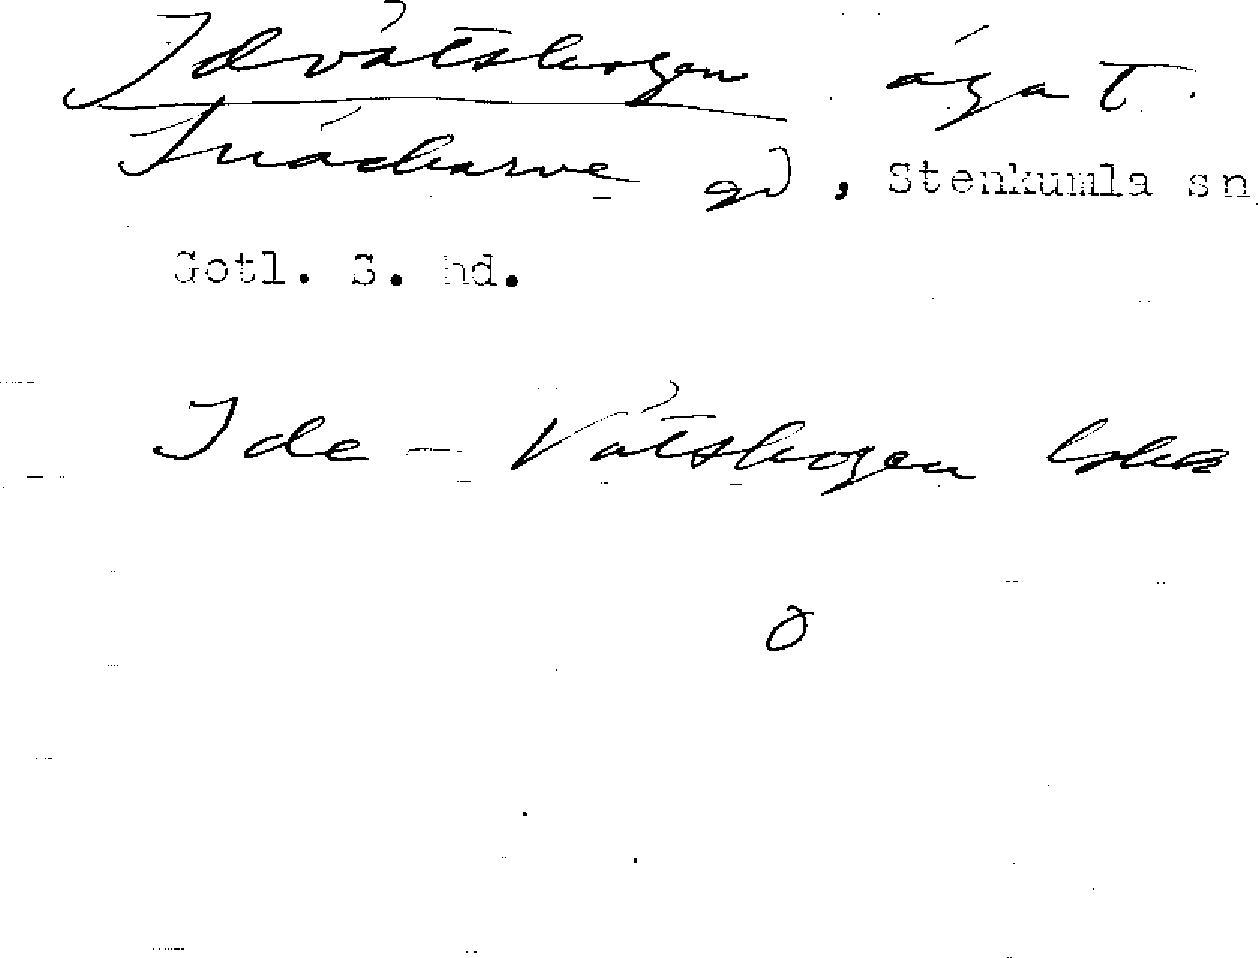 Idvåtskogen ägat.
Snäckarve gd, Stenkumla sn,
Gotl. S. hd.
Ide - Våtskogen